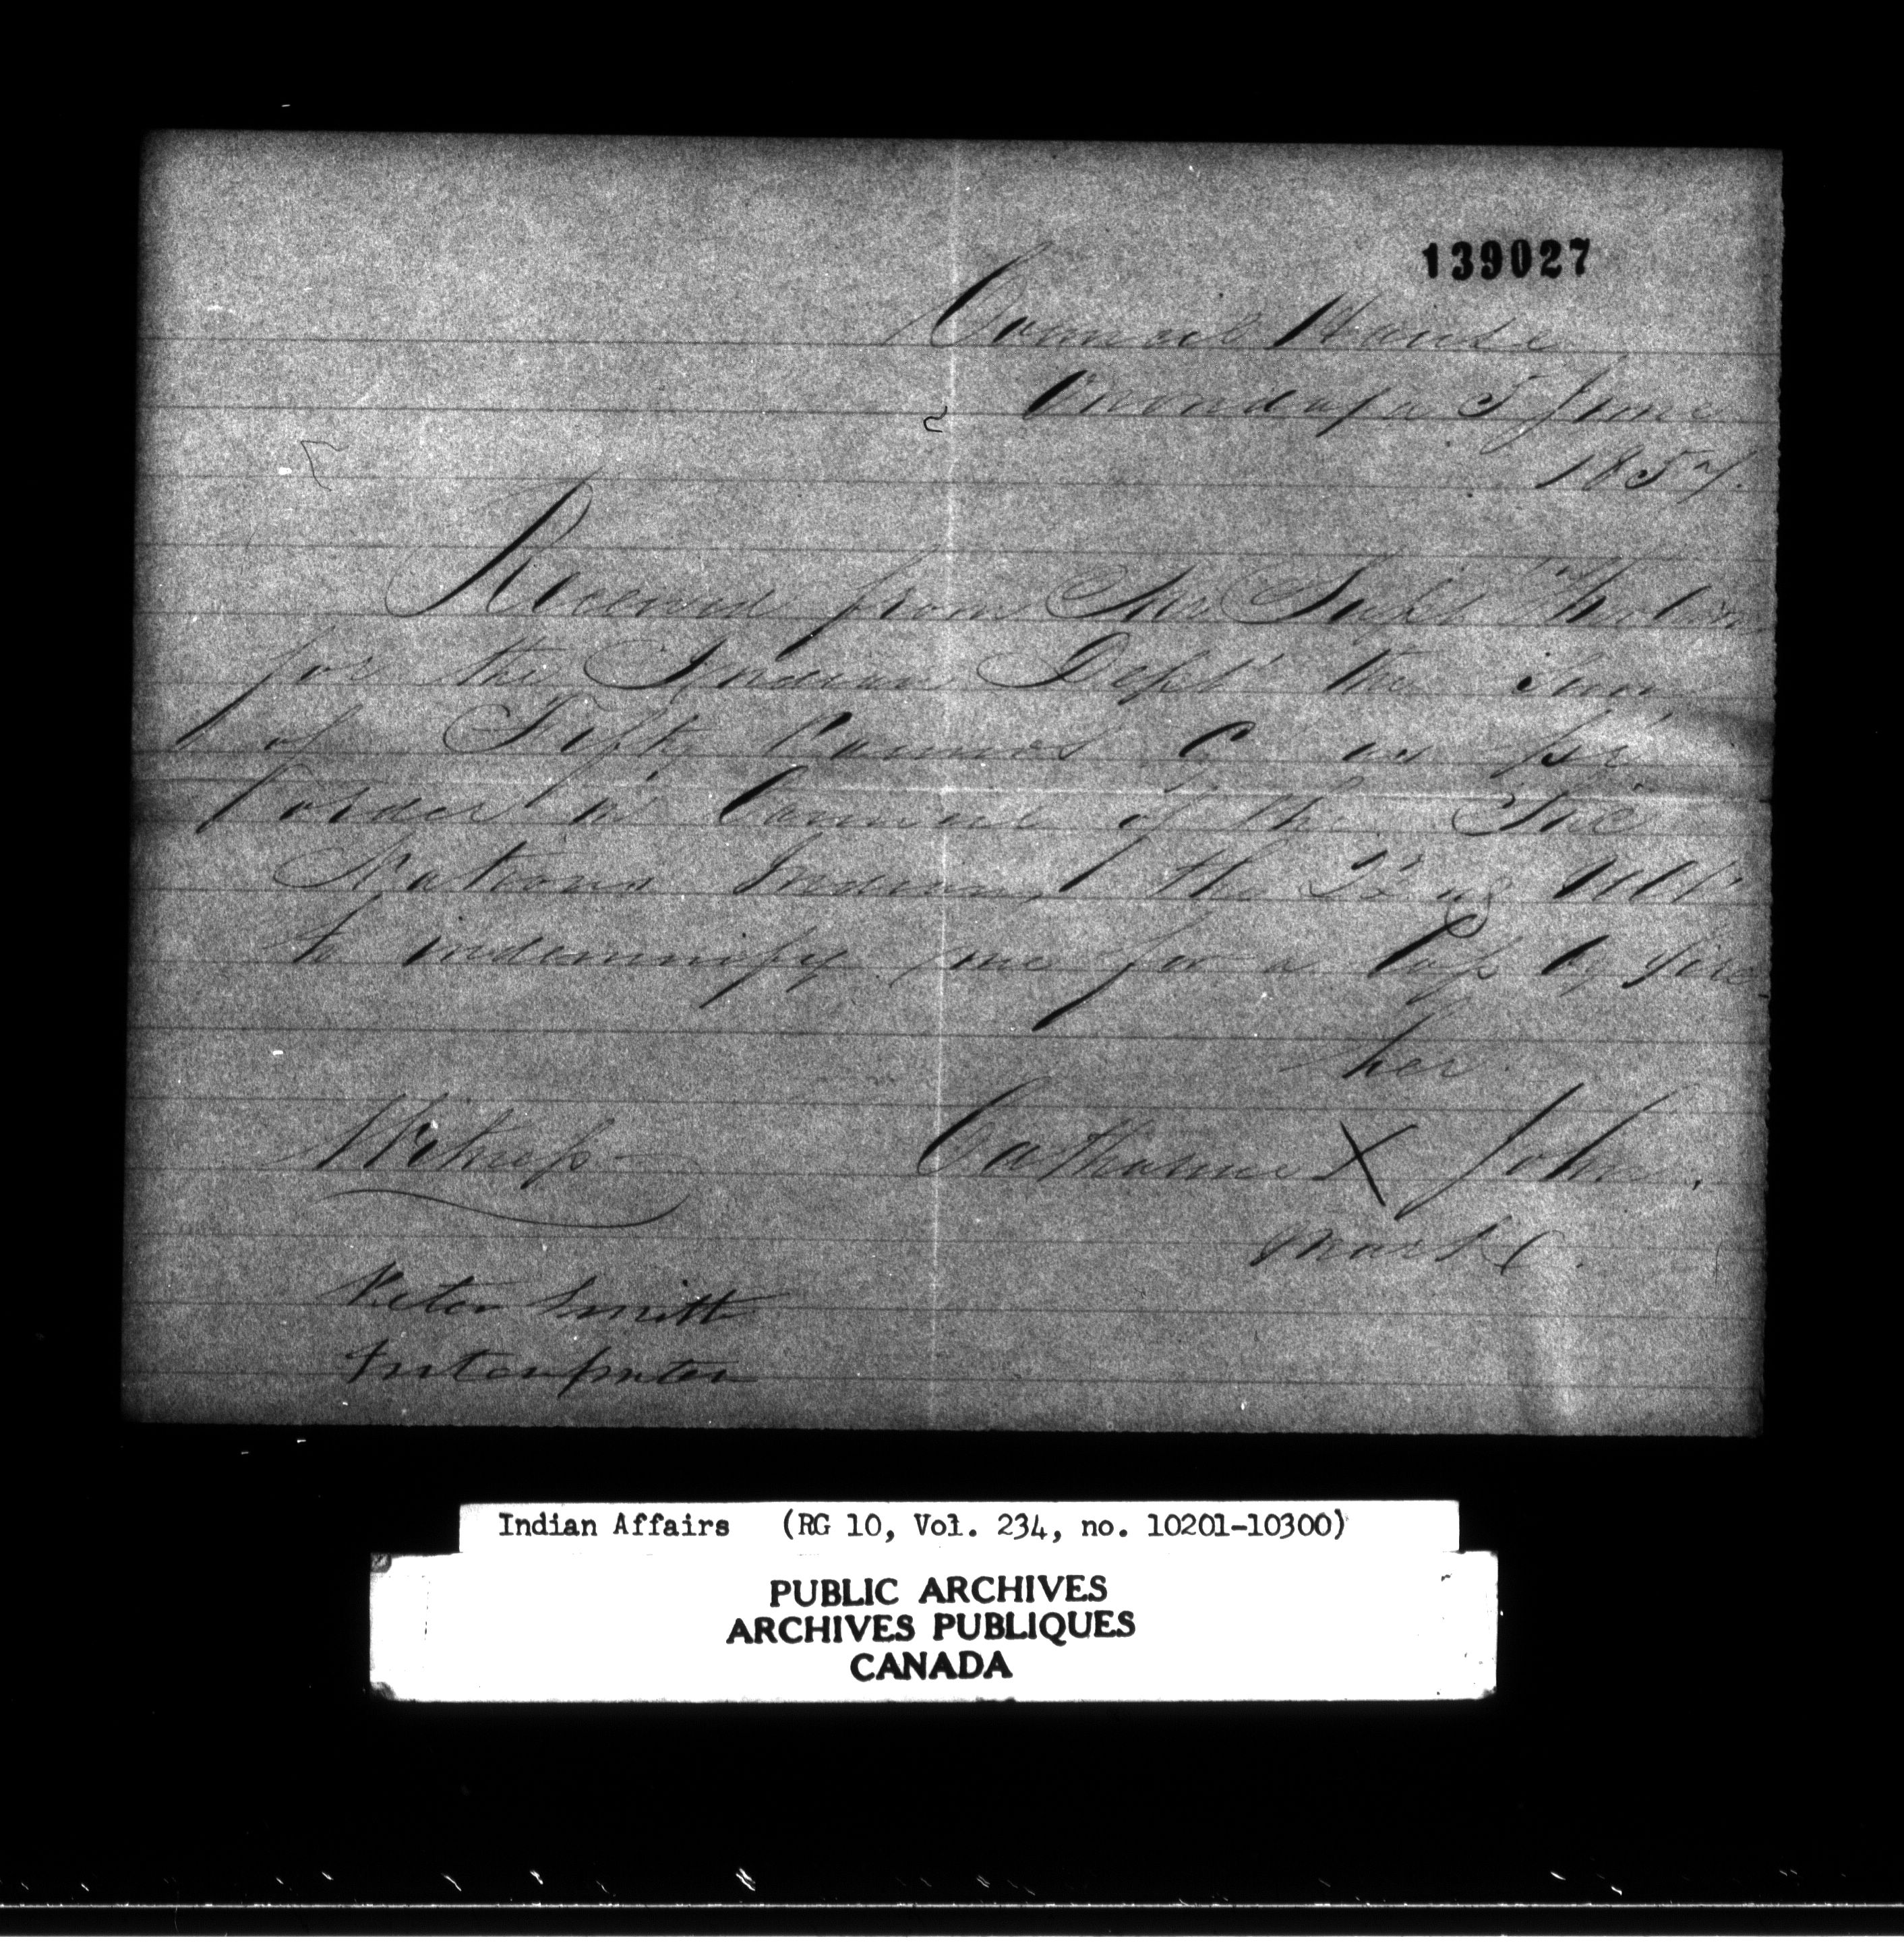 139027
Council House
Onondaga 5 June
1857.
Received from The Supt Thorburn
for the Indian Dept the Sum
of Fifty Pounds C as per
order in Council of the Six
Nations Indians the Ult
to indemnify me for a loss by fire
her
Catharine X John.
mark
Witness
Peter Smith
Interpreter
Indian Affairs (RG 10, Vol. 234, no. 10201-10300)
PUBLIC ARCHIVES
ARCHIVES PUBLIQUES
CANADA